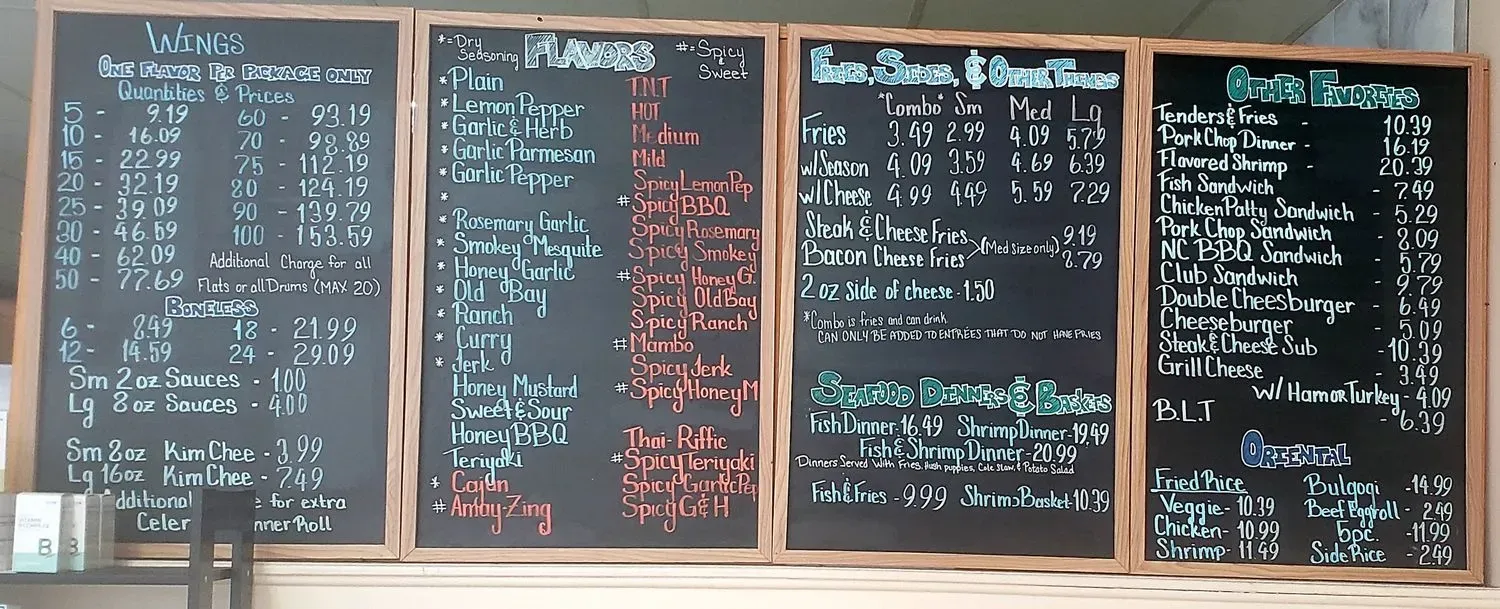 WINGS
ONE FLAVOR PER PACKAGE ONLY
Quantities & Prices
5 - 9.19 60 - 93.19
10 - 16.09 70 - 98.89
15 - 22.99 75 - 112.19
20 - 32.19 80 - 124.19
25 - 39.09 90 - 139.79
30 - 46.59 100 - 153.59
40 - 62.09 Additional Charge for all
50 - 77.69 Flats or all Drums (MAX 20)
BONELESS
6 - 8.49 18 - 21.99
12 - 14.59 24 - 29.09
Sm 2oz Sauces - 1.00
Lg 8oz Sauces - 4.00
Sm 8oz Kim Chee - 3.99
Lg 16oz Kim Chee - 7.49
dditional e for extra
Celer nner Roll
B B
*=Dry Seasoning
FLAVORS
#=Spicy & Sweet
* Plain
* Lemon Pepper
* Garlic & Herb
* Garlic Parmesan
* Garlic Pepper
*
* Rosemary Garlic
* Smokey Mesquite
* Honey Garlic
* Old Bay
* Ranch
* Curry
* Jerk
Honey Mustard
Sweet & Sour
Honey BBQ
Teriyaki
* Cajun
# Amay-Zing
T.N.T
HOT
Medium
Mild
Spicy Lemon Pep
# Spicy BBQ
Spicy Rosemary
Spicy Smokey
# Spicy Honey G.
Spicy Old Bay
Spicy Ranch
# Mambo
Spicy Jerk
# Spicy Honey M
Thai-Riffic
# Spicy Teriyaki
Spicy Garlic Pep
Spicy G&H
FRIES, SIDES, & OTHER THINGS
*Combo* Sm Med Lg
Fries 3.49 2.99 4.09 5.79
w/Season 4.09 3.59 4.69 6.39
w/Cheese 4.99 4.49 5.59 7.29
Steak & Cheese Fries 9.19
Bacon Cheese Fries (Med size only) 8.79
2 oz Side of cheese - 1.50
*Combo is fries and can drink
CAN ONLY BE ADDED TO ENTRÉES THAT DO NOT HAVE FRIES
SEAFOOD DINNERS & BASKETS
Fish Dinner - 16.49 Shrimp Dinner - 19.49
Fish & Shrimp Dinner - 20.99
Dinners Served With Fries, Hush puppies, Cole Slaw, & Potato Salad
Fish & Fries - 9.99 Shrimp Basket - 10.39
OTHER FAVORITES
Tenders & Fries - 10.39
Pork Chop Dinner - 16.19
Flavored Shrimp - 20.39
Fish Sandwich - 7.49
Chicken Patty Sandwich - 5.29
Pork Chop Sandwich - 8.09
NC BBQ Sandwich - 5.79
Club Sandwich - 9.79
Double Cheesburger - 6.49
Cheeseburger - 5.09
Steak & Cheese Sub - 10.39
Grill Cheese - 3.49
w/ Ham or Turkey - 4.09
B.L.T - 6.39
ORIENTAL
Fried Rice
Veggie - 10.39
Chicken - 10.99
Shrimp - 11.49
Bulgogi - 14.99
Beef Eggroll - 2.49
5pc. - 11.99
Side Rice - 2.49